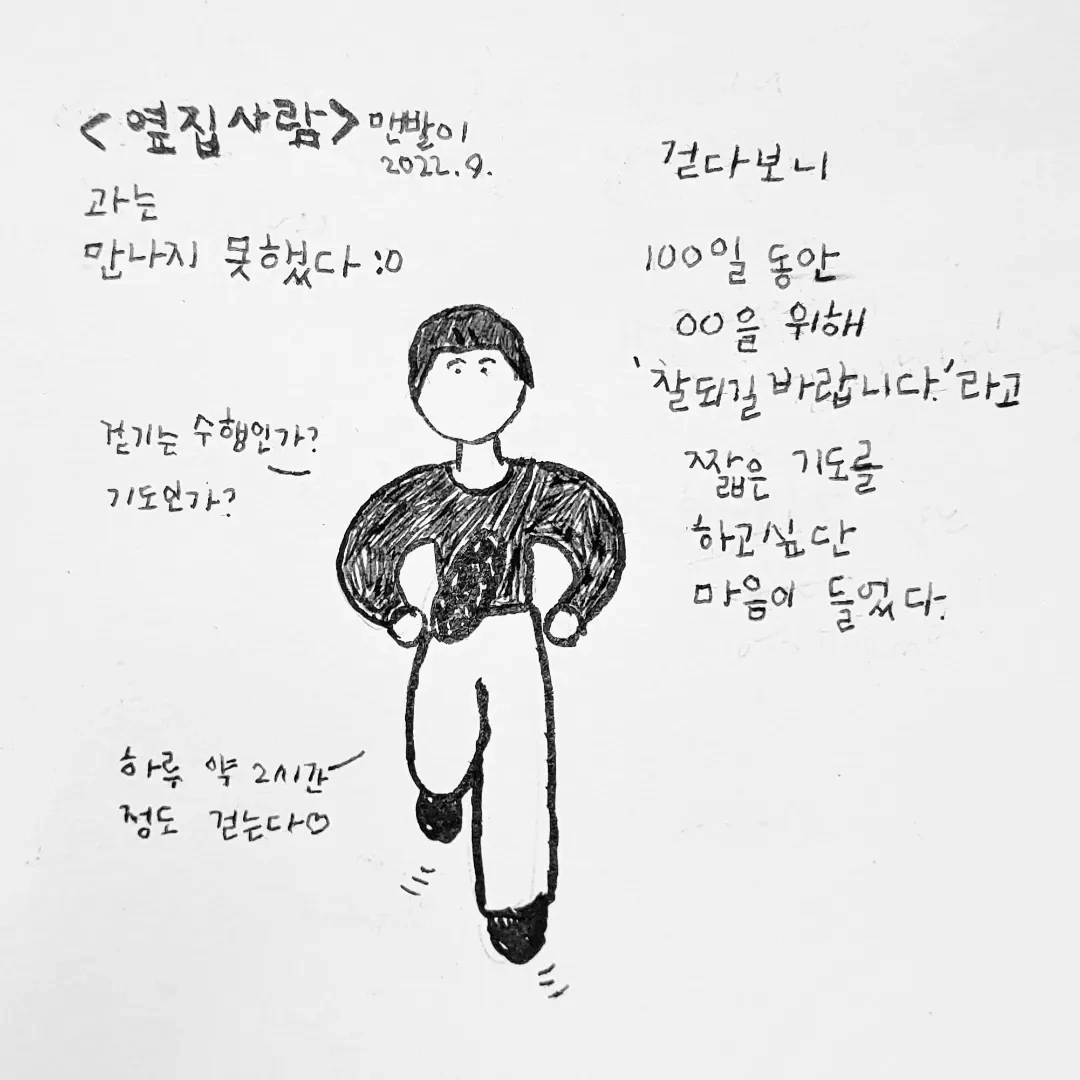 <옆집사람> 맨발이
2022.9.
과는
만나지 못했다 :0
걷기는 수행인가?
기도인가?
하루 약 2시간
정도 걷는다♡
걷다보니
100일 동안
00을 위해
'잘되길 바랍니다.'라고
짧은 기도를
하고싶단
마음이 들었다.